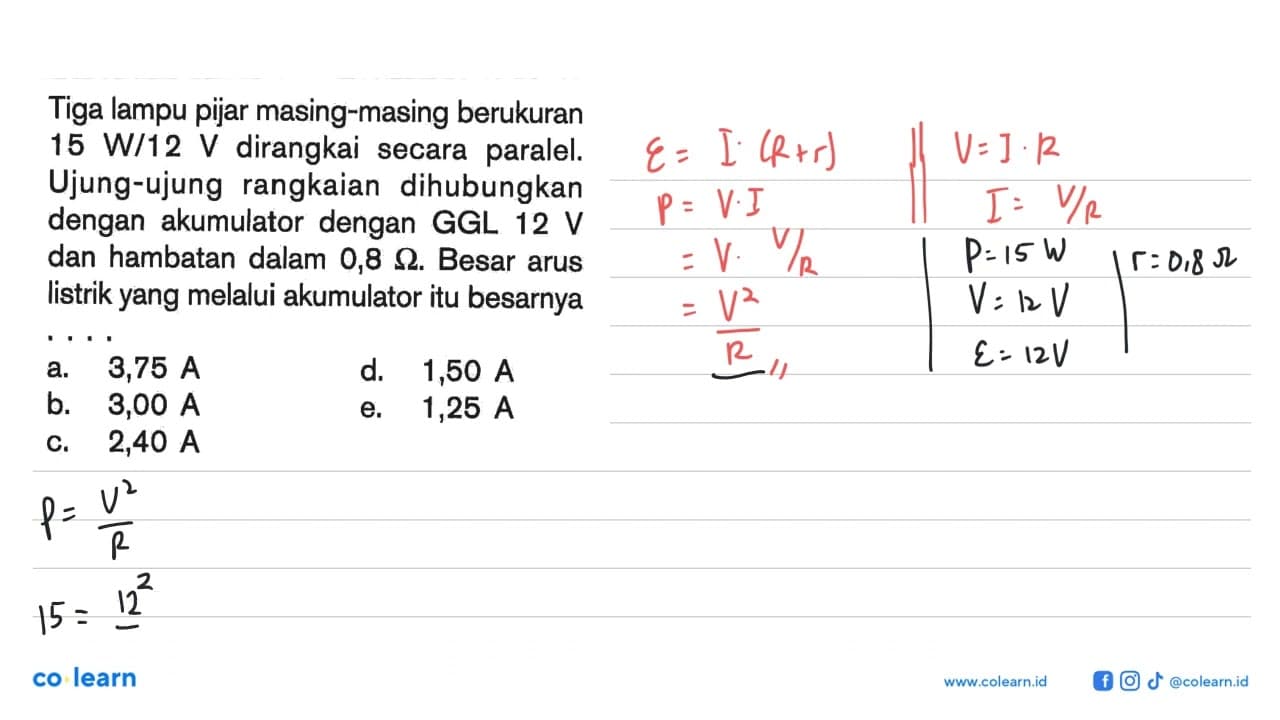 Tiga lampu pijar masing-masing berukuran
15 W/12 V dirangkai secara paralel.
Ujung-ujung rangkaian dihubungkan
dengan akumulator dengan GGL 12 V
dan hambatan dalam 0,8 Ω. Besar arus
listrik yang melalui akumulator itu besarnya
....
a. 3,75 A
b. 3,00 A
c. 2,40 A
d. 1,50 A
e. 1,25 A
ε = I . (R+r)
P = V.I
= V. V/R
= V²/R
V = I . R
I = V/R
P = 15 W
V = 12 V
ε = 12V
r = 0,8 Ω
P = V²/R
15 = 12²
co learn
www.colearn.id
@colearn.id